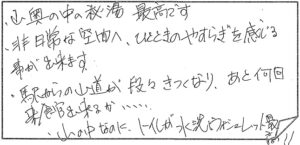 ・山奥の中の秘湯 最高です
・非日常な空間へ、ひとときのやすらぎを感じる
事が出来ます
・駅からの山道が段々きつくなり、あと何回
来る事が……
・山の中なのに、トイレが水洗ウォシュレット最